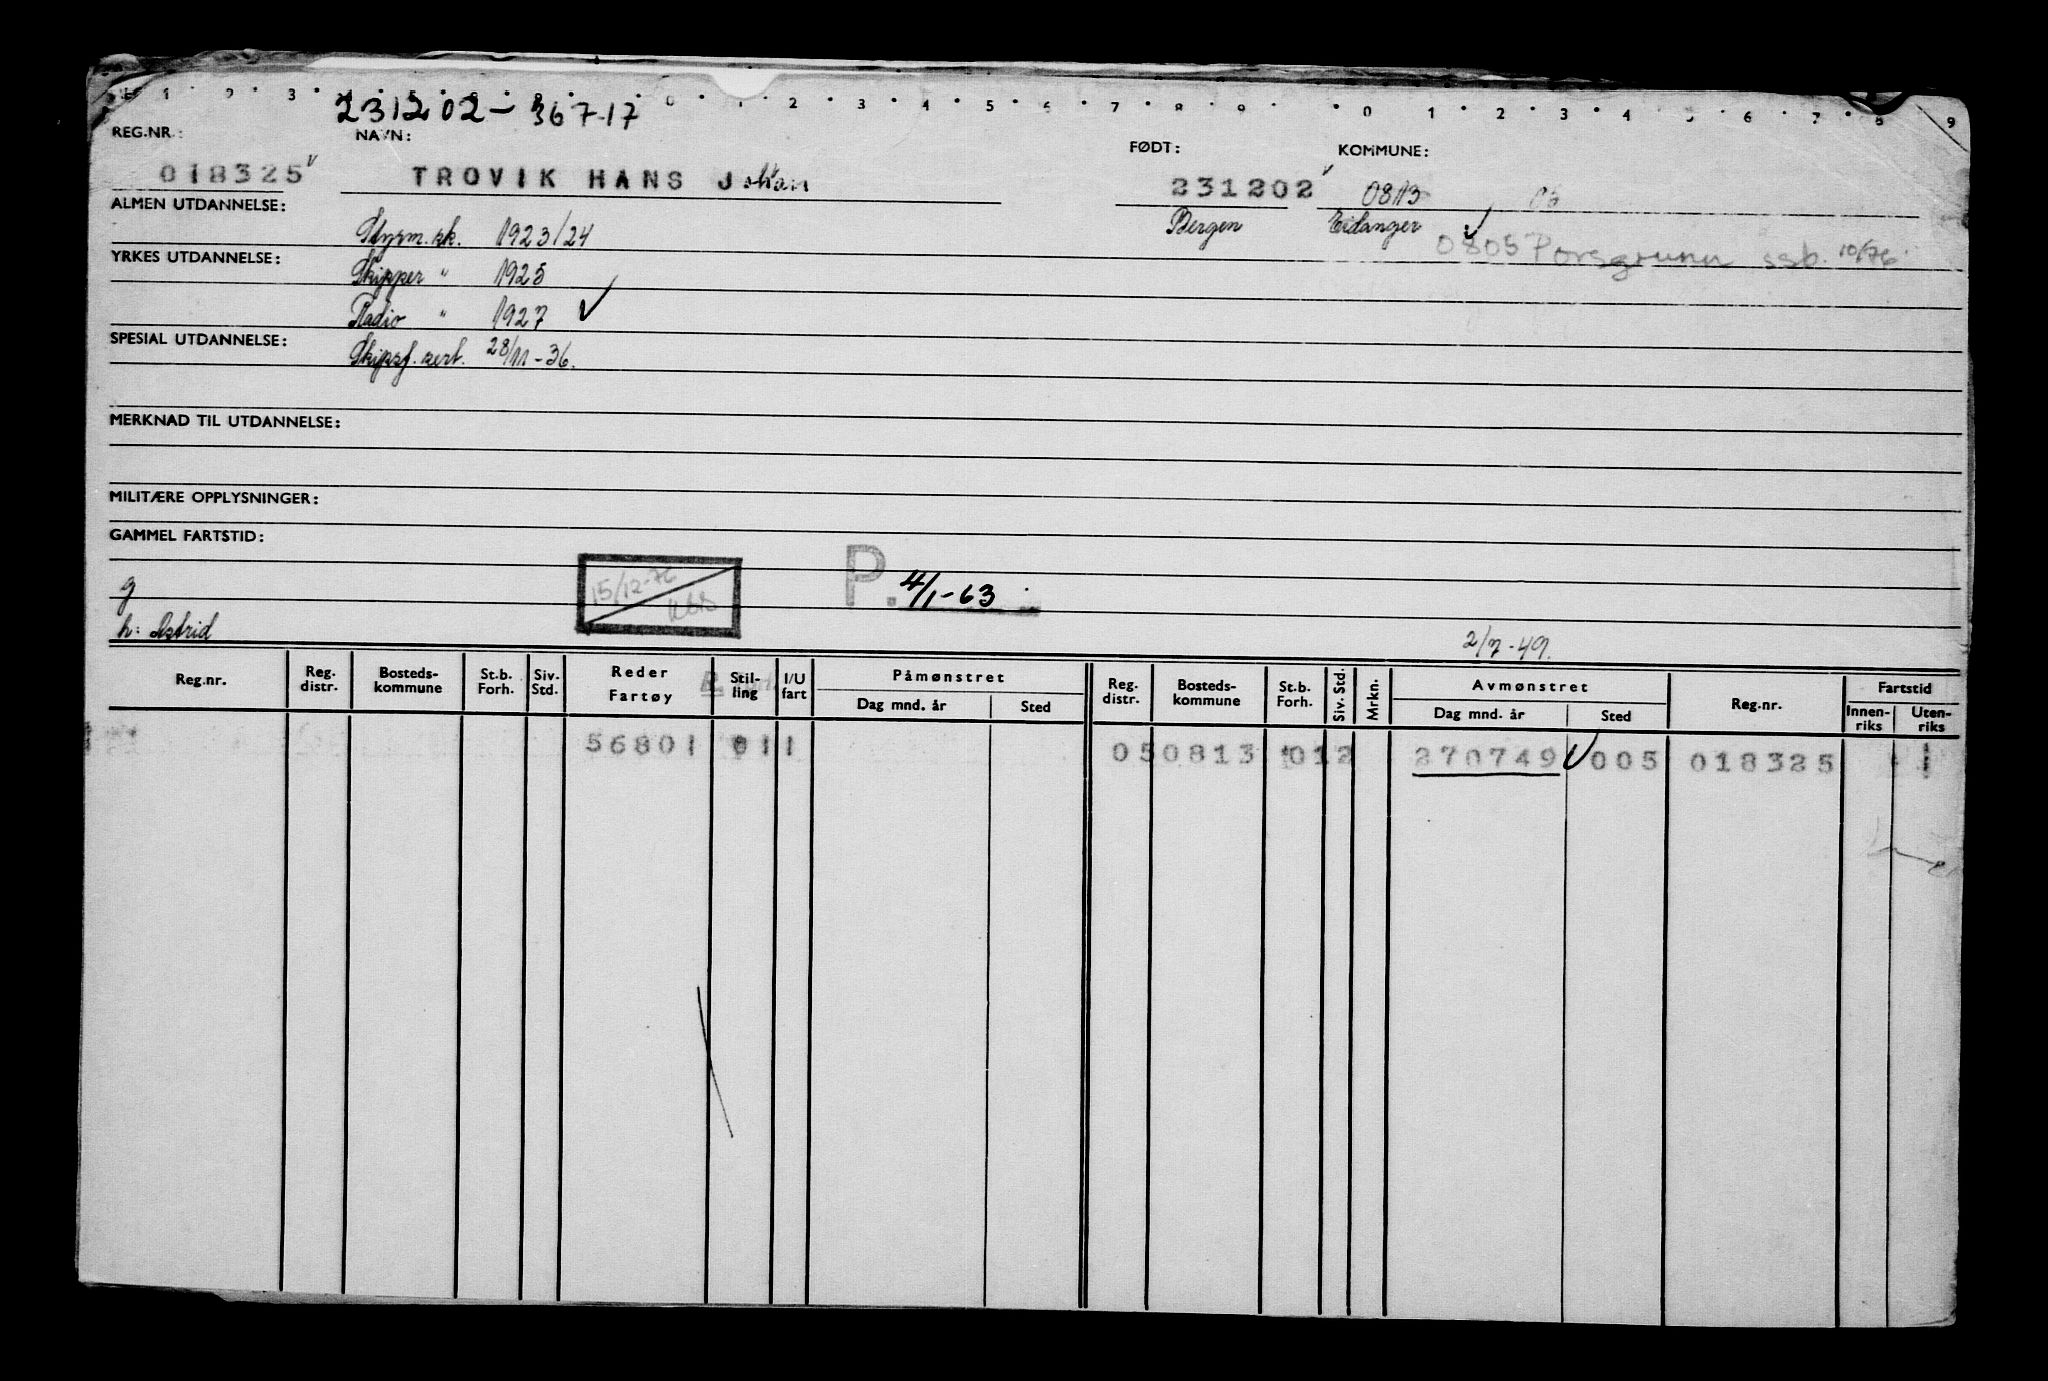 1 · 2 · 3 · 0 · 1 · 2 · 3 · 4 · 5 · 6 · 7 · 8 · 9 · 0 1 · 2 · 3 · 4 · 5 · 6 · 7 · 8 9
231202 - 36717
REG.NR.: NAVN: FØDT: KOMMUNE:
018325 TROVIK HANS Johan 231202 0813 06
ALMEN UTDANNELSE: Styrm.sk. 1923/24 Bergen Eidanger
0805 Porsgrunn ssb. 10/76
YRKES UTDANNELSE: Skipper " 1925
Radio " 1927
SPESIAL UTDANNELSE: Skipsf. sert. 28/11-36.
MERKNAD TIL UTDANNELSE:
MILITÆRE OPPLYSNINGER:
GAMMEL FARTSTID:
g 15/12-76 P. 4/1-63
h: Astrid 2/7-49.
Reg.nr. Reg. distr. Bosteds-kommune St.b. Forh. Siv. Std. Reder Fartøy Stil-ling I/U fart Påmønstret Dag mnd. år Sted Reg. distr. Bosteds-kommune St.b. Forh. Siv. Std. Mrkn. Avmønstret Dag mnd. år Sted Reg.nr. Fartstid Innen-riks Uten-riks
56801 011 050813 012 270749 005 018325 1